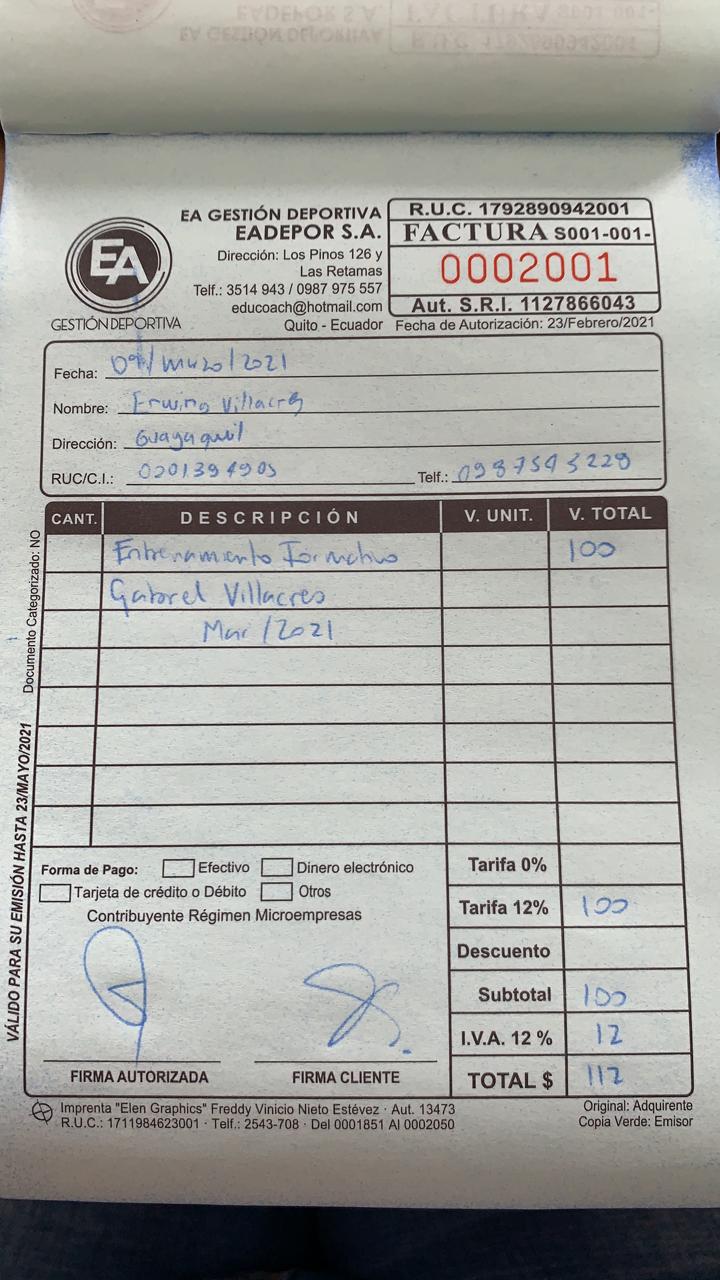 EA GESTIÓN DEPORTIVA
EADEPOR S.A.
Dirección: Los Pinos 126 y
Las Retamas
Telf.: 3514 943 / 0987 975 557
educoach@hotmail.com
Quito - Ecuador
EA
GESTIÓN DEPORTIVA
R.U.C. 1792890942001
FACTURA S001-001-
0002001
Aut. S.R.I. 1127866043
Fecha de Autorización: 23/Febrero/2021
Fecha: 09/marzo/2021
Nombre: Erwing Villacrés
Dirección: Guayaquil
RUC/C.I.: 0201394905 Telf.: 0987545228
CANT. DESCRIPCIÓN V. UNIT. V. TOTAL
Entrenamiento Formativo 100
Gabriel Villacres
Mar/2021
Documento Categorizado: NO
VÁLIDO PARA SU EMISIÓN HASTA 23/MAYO/2021
Forma de Pago: Efectivo Dinero electrónico
Tarjeta de crédito o Débito Otros
Contribuyente Régimen Microempresas
Tarifa 0%
Tarifa 12% 100
Descuento
Subtotal 100
I.V.A. 12 % 12
TOTAL $ 112
FIRMA AUTORIZADA FIRMA CLIENTE
Imprenta "Elen Graphics" Freddy Vinicio Nieto Estévez · Aut. 13473
R.U.C.: 1711984623001 · Telf.: 2543-708 · Del 0001851 Al 0002050
Original: Adquirente
Copia Verde: Emisor